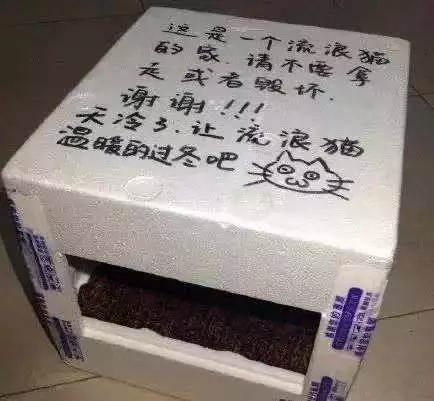 这是一个流浪猫
的家.请不要拿
走或者毁坏.
谢谢!!!
天冷了.让流浪猫
温暖的过冬吧